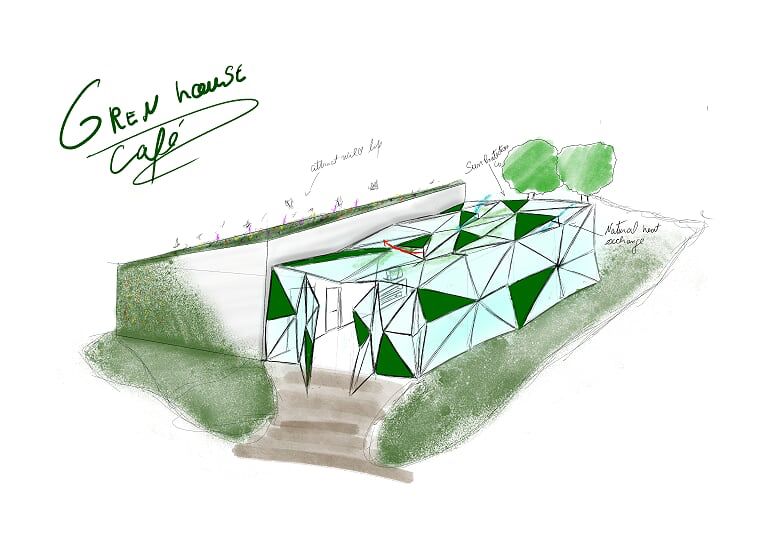 GREN house
café
attract wild life
Sun Protection
Natural heat
exchange